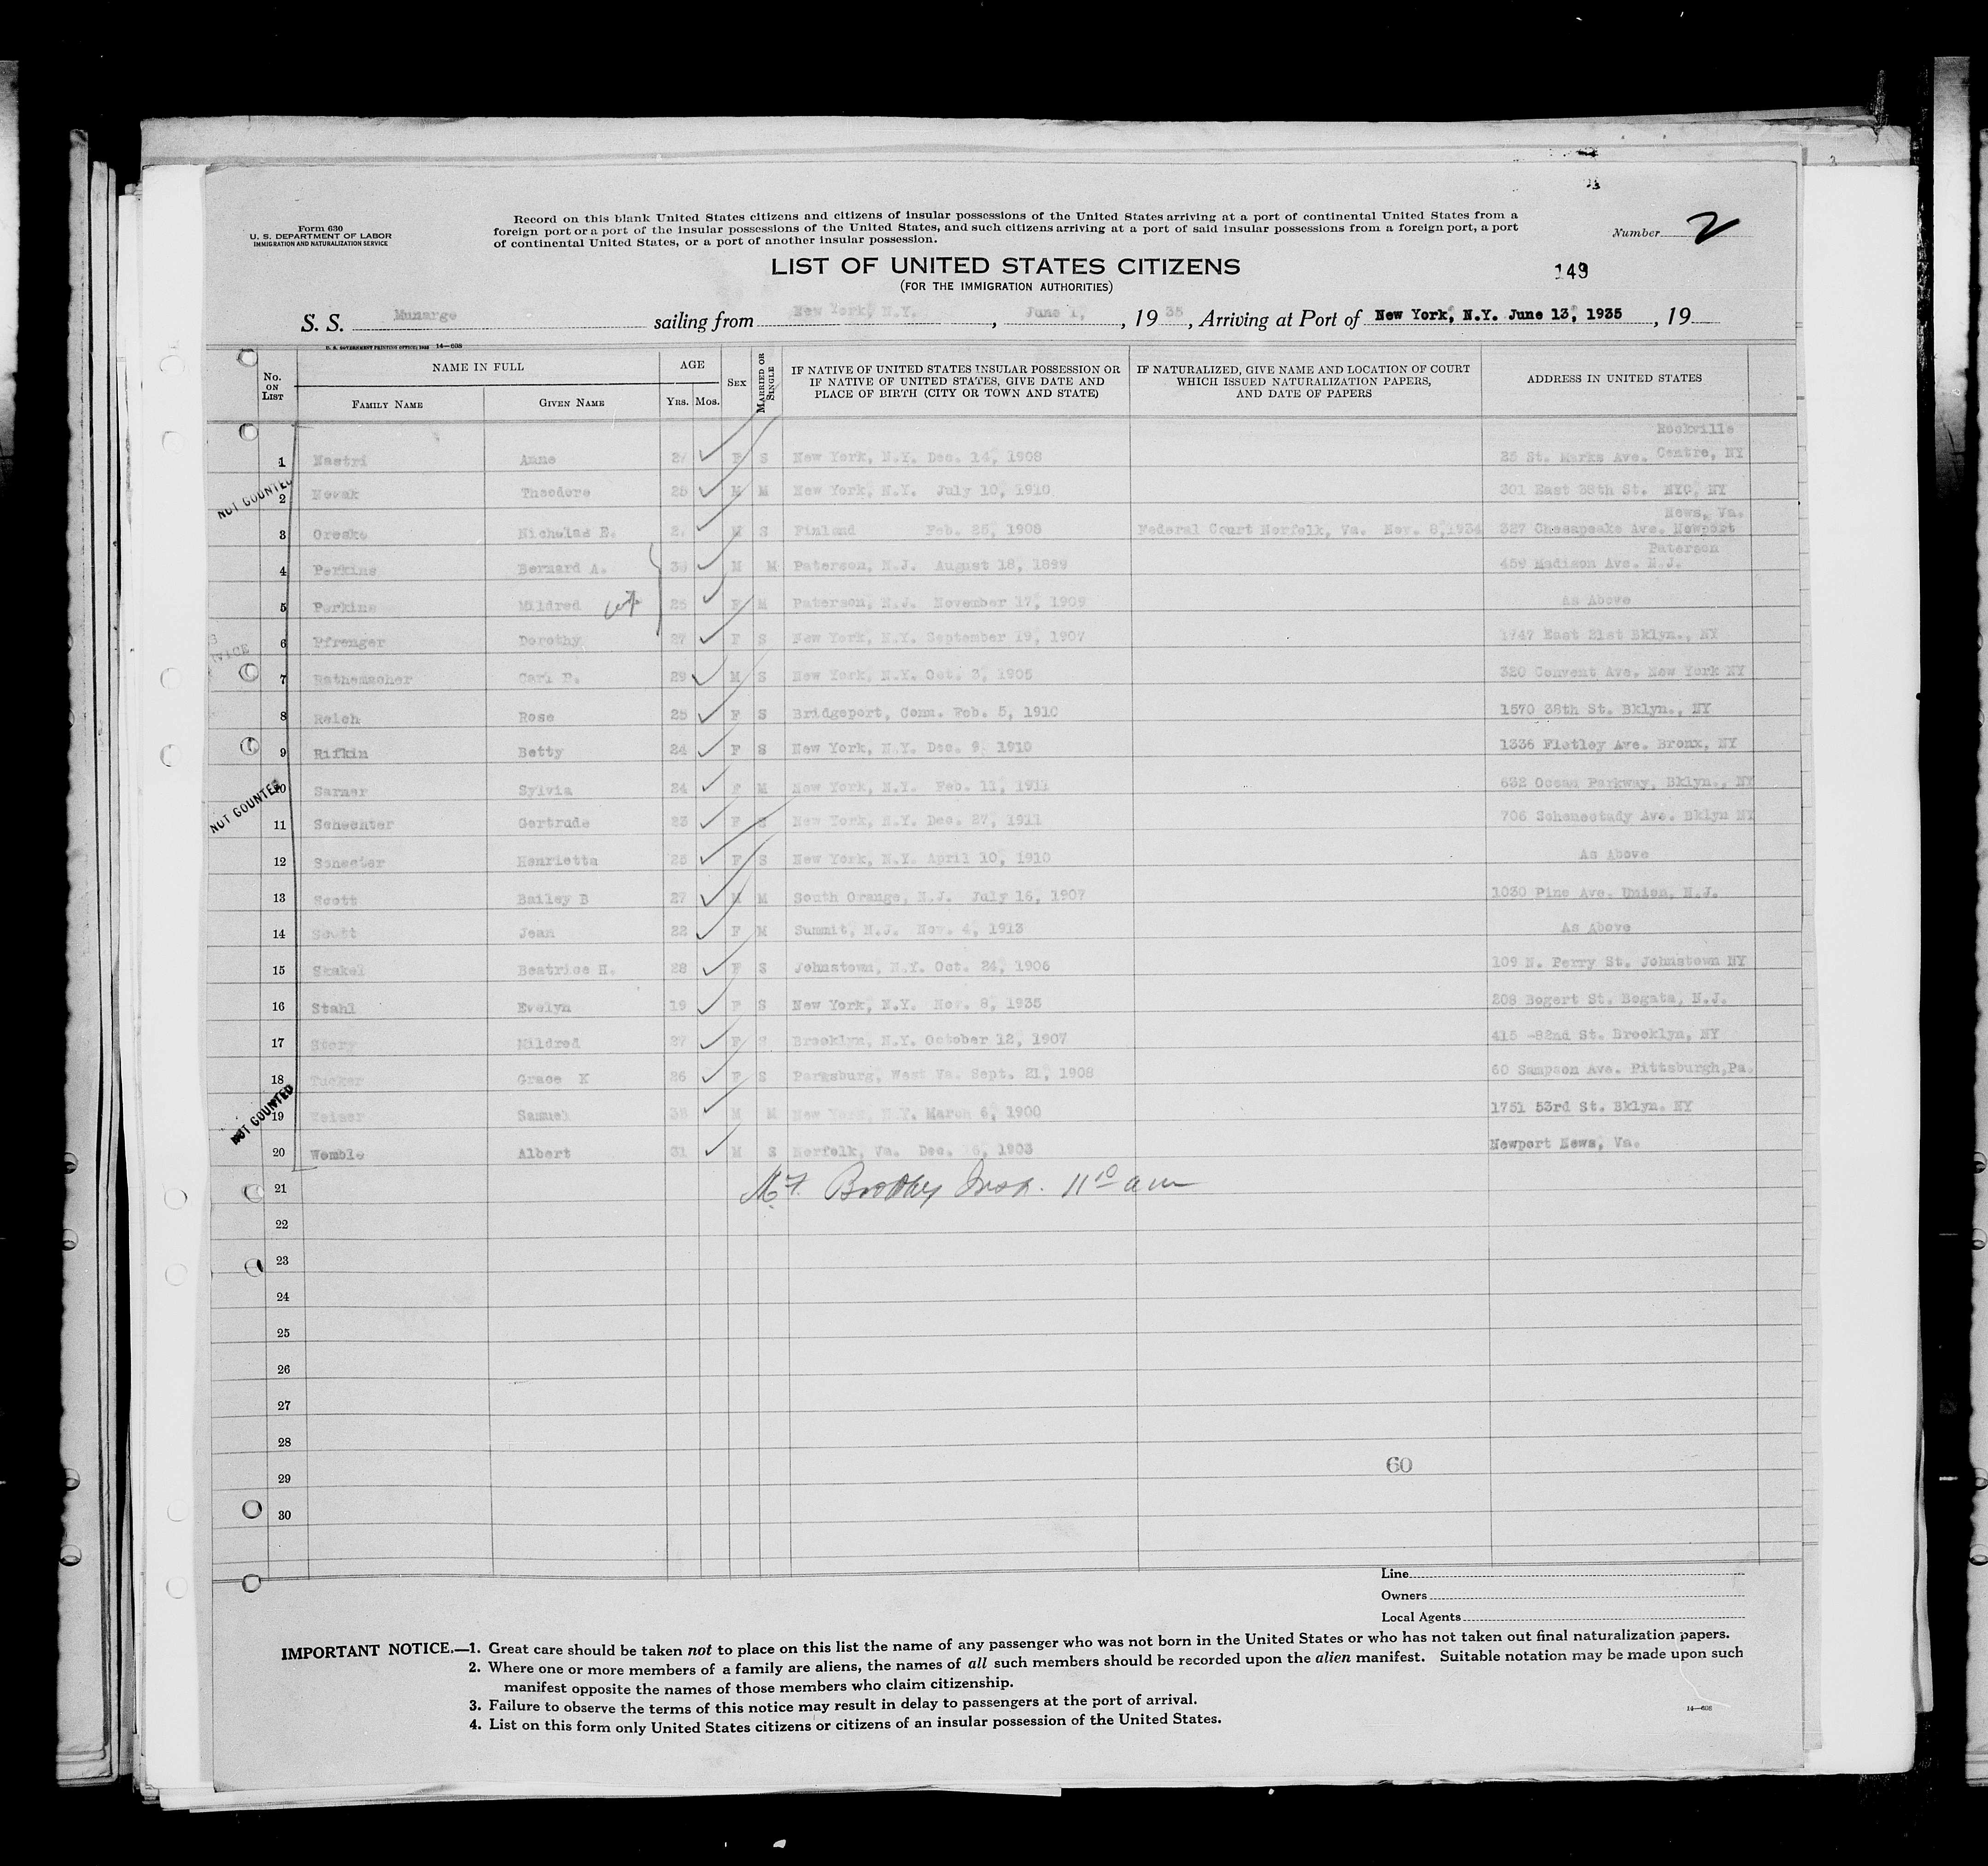 Form 630
U. S. DEPARTMENT OF LABOR
IMMIGRATION AND NATURALIZATION SERVICE
Record on this blank United States citizens and citizens of insular possessions of the United States arriving at a port of continental United States from a
foreign port or a port of the insular possessions of the United States, and such citizens arriving at a port of said insular possessions from a foreign port, a port
of continental United States, or a port of another insular possession.
Number 2
LIST OF UNITED STATES CITIZENS
(FOR THE IMMIGRATION AUTHORITIES)
149
S. S. Munargo sailing from New York, N.Y. , June 1, , 19 35 , Arriving at Port of New York, N.Y. June 13, 1935 , 19
U. S. GOVERNMENT PRINTING OFFICE: 14—608
No. ON LIST NAME IN FULL FAMILY NAME GIVEN NAME AGE YRS. MOS. SEX MARRIED OR SINGLE IF NATIVE OF UNITED STATES INSULAR POSSESSION OR IF NATIVE OF UNITED STATES, GIVE DATE AND PLACE OF BIRTH (CITY OR TOWN AND STATE) IF NATURALIZED, GIVE NAME AND LOCATION OF COURT WHICH ISSUED NATURALIZATION PAPERS, AND DATE OF PAPERS ADDRESS IN UNITED STATES
Rockville
1 Nastri Anne F S New York, N.Y. Dec. 14, 1908 25 St. Marks Ave. Centre, NY
NOT COUNTED
2 Novak Theodore 25 M M New York, N.Y. July 10, 1910 301 East 38th St. NYC, NY
News, Va.
3 Oresko Nicholas E. M S Finland Feb. 25, 1908 Federal Court Norfolk, Va. Nov. 8,1934 327 Chesapeake Ave. Newport
Paterson
4 Perkins Bernard A. M M Paterson, N.J. August 18, 1899 459 Madison Ave. N.J.
5 Perkins Mildred wife 25 F M Paterson, N.J. November 17, 1909 As Above
6 Pfrenger Dorothy 27 F S New York, N.Y. September 19, 1907 1747 East 21st Bklyn., NY
7 Rathemacher Carl 29 M S New York, N.Y. Oct. 3, 1905 320 Convent Ave. New York NY
8 Reich Rose 25 F S Bridgeport, Conn. Feb. 5, 1910 1570 38th St. Bklyn., NY
9 Rifkin Betty 24 F S New York, N.Y. Dec. 9, 1910 1336 Ave. Bronx, NY
NOT COUNTED
10 Sarner Sylvia 24 F M New York, N.Y. Feb. 11, 1911 632 Ocean Parkway, Bklyn., NY
11 Schecter Gertrude 23 F S New York, N.Y. Dec. 27, 1911 706 Schenectady Ave. Bklyn NY
12 Schecter Henrietta 25 F S New York, N.Y. April 10, 1910 As Above
13 Scott Bailey B 27 M M South Orange, N.J. July 16, 1907 1030 Pine Ave. Union, N.J.
14 Scott Jean 22 F M Summit, N.J. Nov. 4, 1913 As Above
15 Skakel Beatrice H. 28 F S Johnstown, N.Y. Oct. 24, 1906 109 N. Perry St. Johnstown NY
16 Stahl Evelyn 19 F S New York, N.Y. Nov. 8, 1935 208 Bogert St. Bogata, N.J.
17 Story Mildred 27 F S Brooklyn, N.Y. October 12, 1907 415 -82nd St. Brooklyn, NY
18 Tucker Grace K 26 F S Parksburg, West Va. Sept. 21, 1908 60 Sampson Ave. Pittsburgh,Pa.
NOT COUNTED
19 Weiser Samuel M M New York, N.Y. March 6, 1900 1751 53rd St. Bklyn. NY
20 Womble Albert 31 M S Norfolk, Va. Dec. 1903 Newport News, Va.
21
22
23
24
25
26
27
28
29
30
60
Line
Owners
Local Agents
IMPORTANT NOTICE.—1. Great care should be taken not to place on this list the name of any passenger who was not born in the United States or who has not taken out final naturalization papers.
2. Where one or more members of a family are aliens, the names of all such members should be recorded upon the alien manifest. Suitable notation may be made upon such
manifest opposite the names of those members who claim citizenship.
3. Failure to observe the terms of this notice may result in delay to passengers at the port of arrival.
4. List on this form only United States citizens or citizens of an insular possession of the United States.
14—608